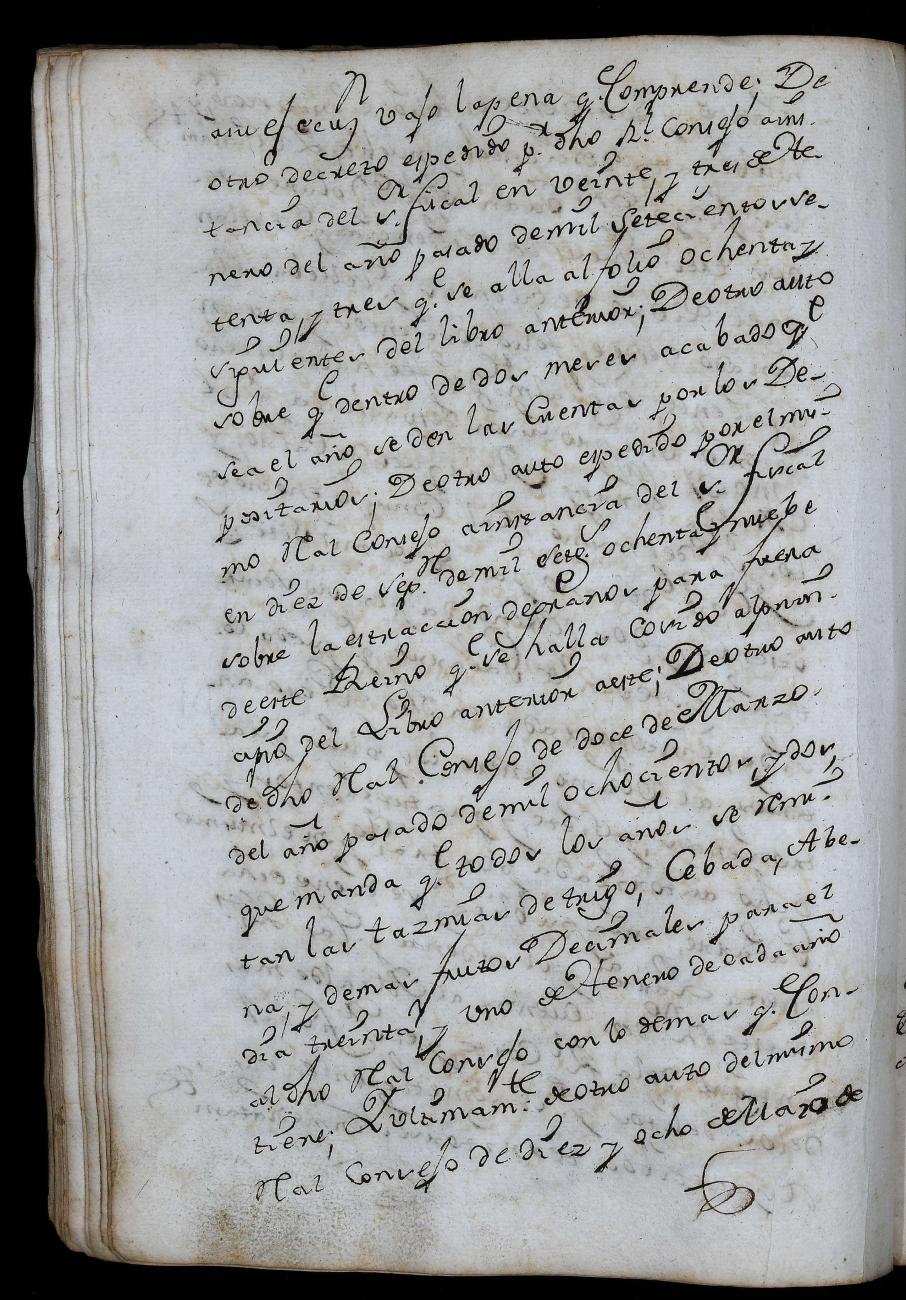 aiu esecuz.n vajo lapena q.e Comprende; De
otro decreto espedido p.r dho R.l Consejo àins-
tancia del s.or fiscal en veinte, y tres de He-
nero del año pasado demil setecientos se-
tenta, y tres q.e se alla al folio ochenta y
siguientes del libro anterior; De otro auto
sobre q.e dentro de dos meses acabado q.e
sea el año se den las Cuentas por los De-
positarios; De otro auto espedido por el mis-
mo Real Consejo àinstancia del s.or fiscal
en diez de sep.re demil sete.s ochenta y nuebe
sobre la estracción degranos para fuera
de este Reino q.e se halla Cosido alprin-
cipio del Libro anterior aeste; De otro auto
de dho Real Consejo de doce de Marzo
del año pasado demil ochocientos, y dos,
que manda q.e todos los años se remi-
tan las tazmias de trigo, Cebada, Abe-
na, y demas frutos Decimales para el
dia treinta, y uno de Henero de cada año
al dho Real Consejo con lo demas q.e Con-
tiene; Y ultimam.te de otro auto del mismo
Real Consejo de diez y ocho de Marzo de